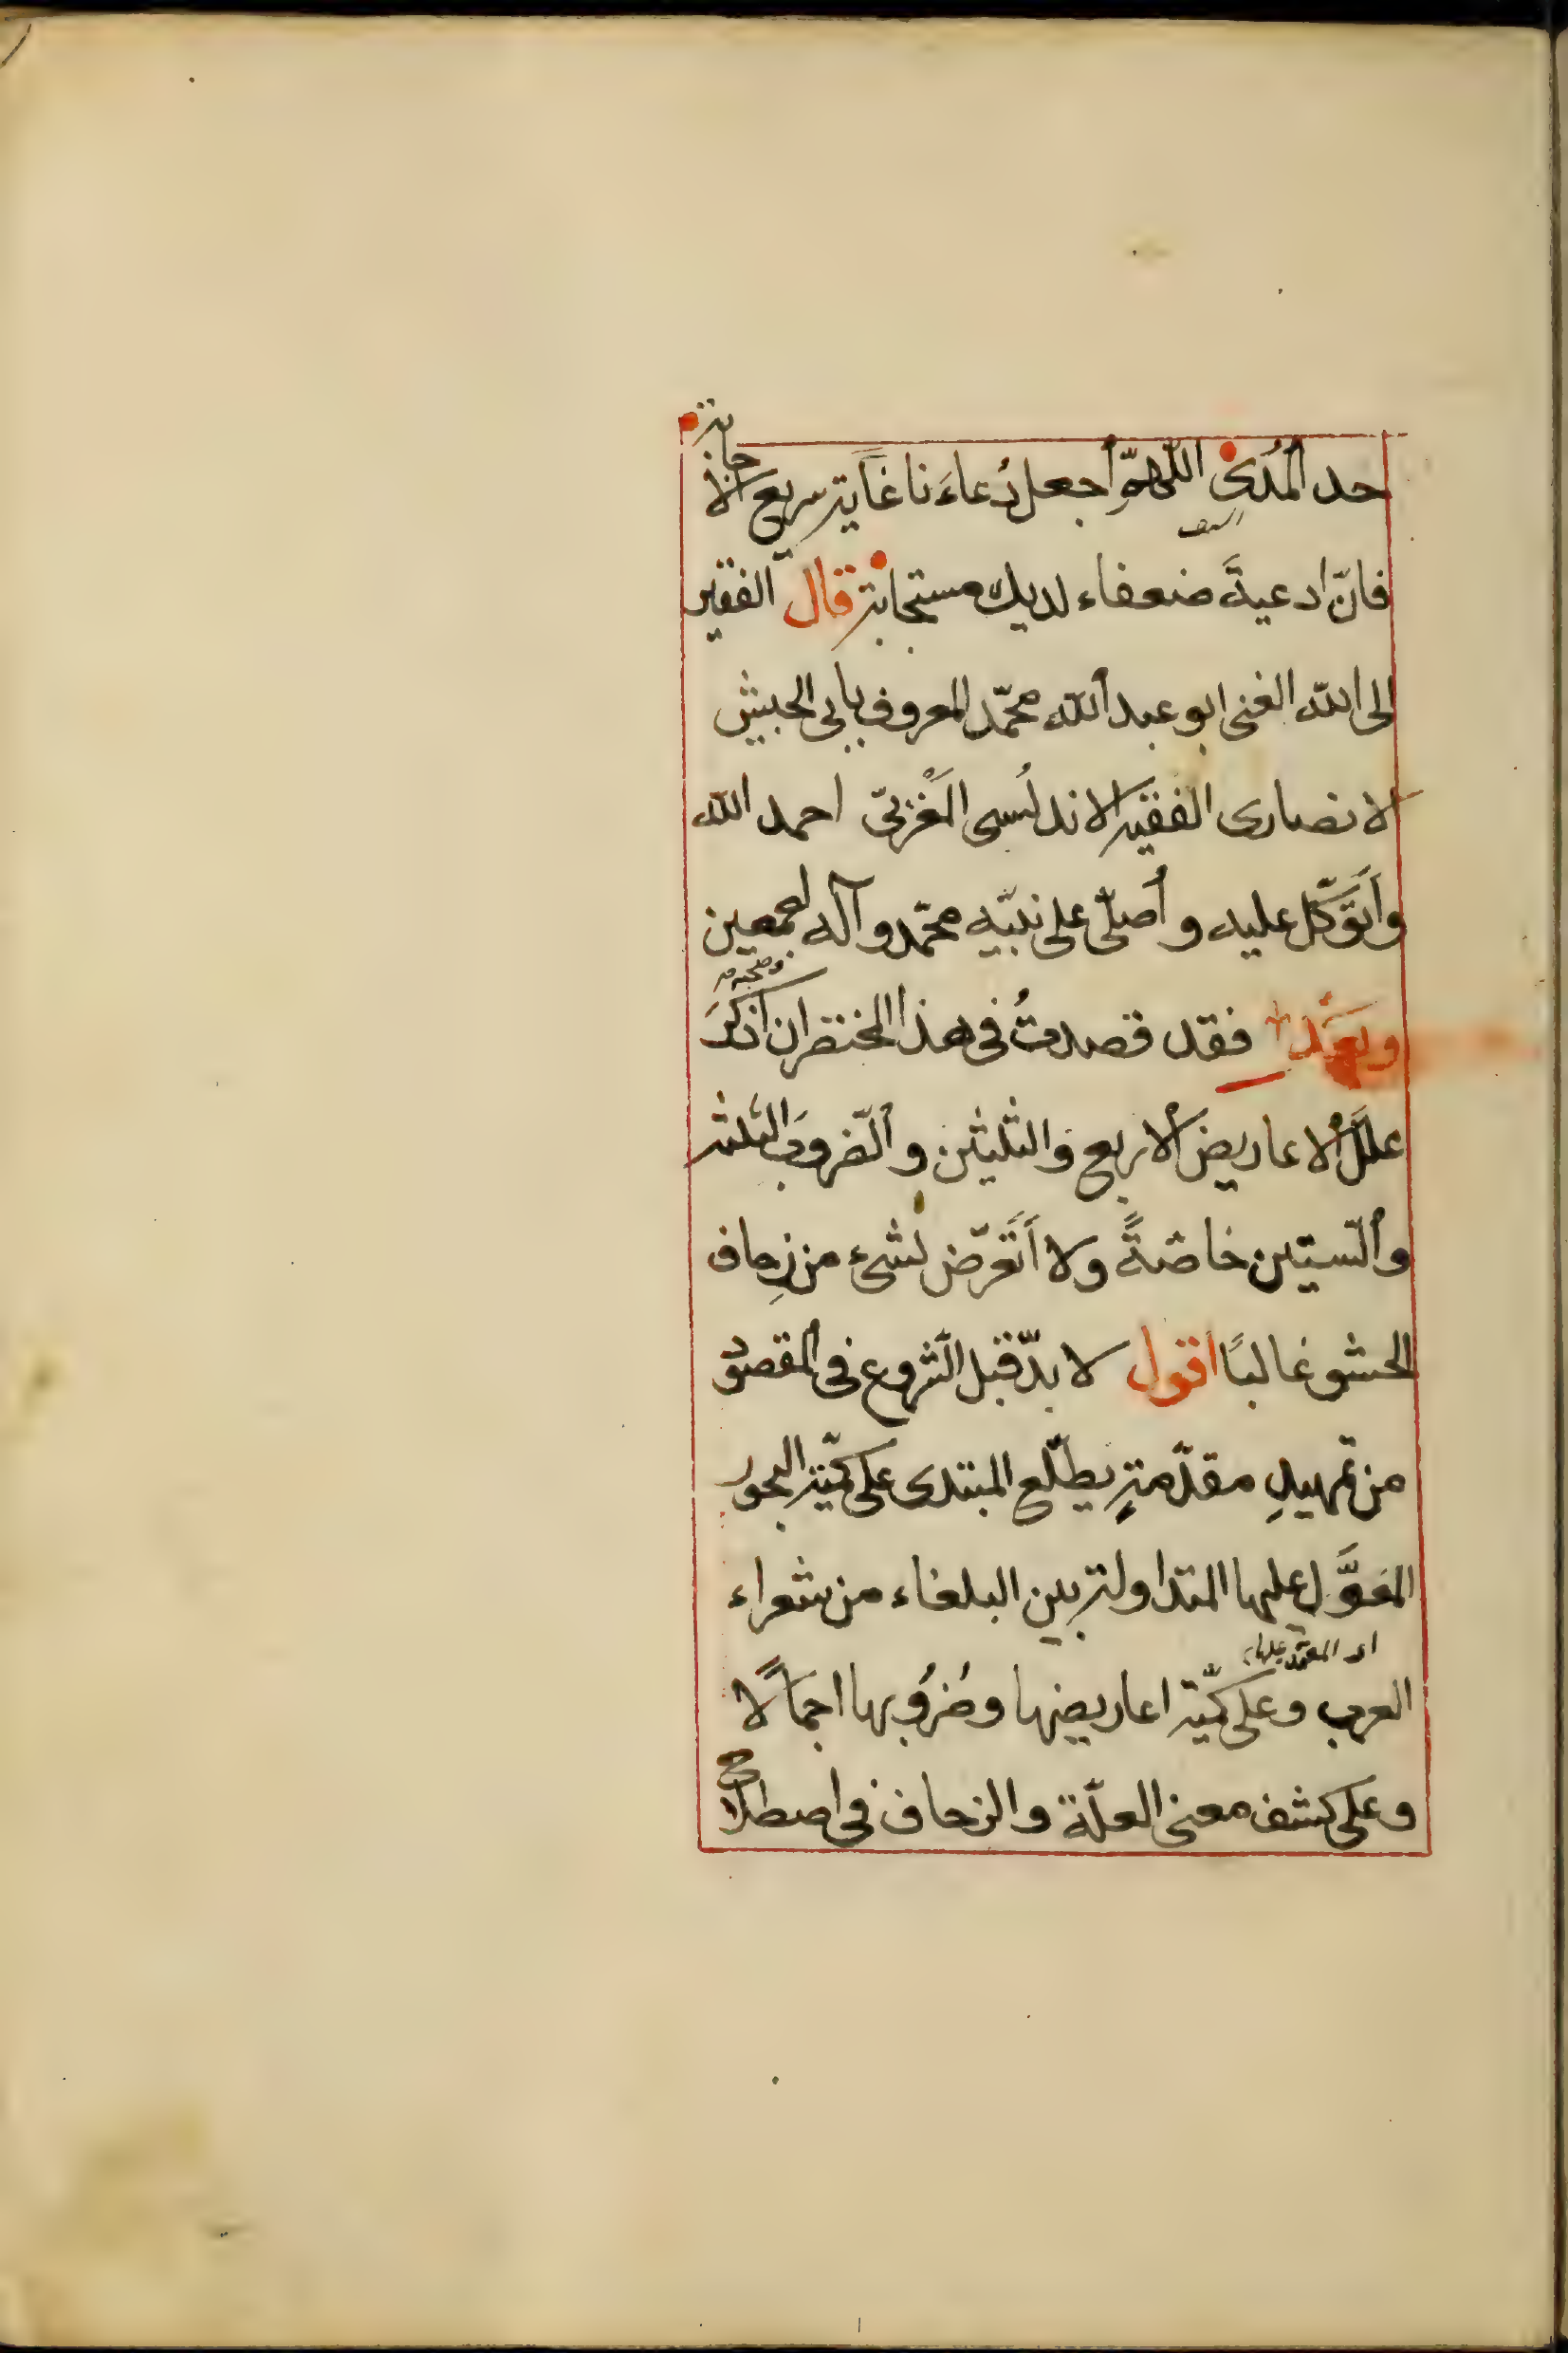 حد المُدىٰ اللّٰهمّ اجعل دُعاءَنا غاية سريع الاجابة
فانّ ادعيةَ ضعفاء لديك مستجابة قال الفقير
الى الله الغنى ابو عبد الله محمّد المعروف بابى الجيش
الانصارى الفقير الاندلُسى المَغْربىّ احمد الله
وَأتَوَكّل عليه وأصلّى على نبيّه محمّد وآله اجمعين
وصحبه
وبَعْد فقد قصدتُ فى هذا المختصر ان اذكرَ
عللَ الاعاريض الاربع والثلثين والضروب الثلثة
والستين خاصّةً ولا أتَعرّض لشىء من زِحاف
الحشو غالبًا اقول لا بدّ قبل الشروع فى المقصود
من تمهيدِ مقدّمةٍ يطلّع المبتدى على كميّة البحور
المعَوَّل عليها المتداولة بين البلغاء من شعراء
اى المعتمد عليها
العرب وعلى كميّة اعاريضها وضُرُوبها اجمالًا
وعلى كشف معنى العلّة والزحاف فى اصطلاح